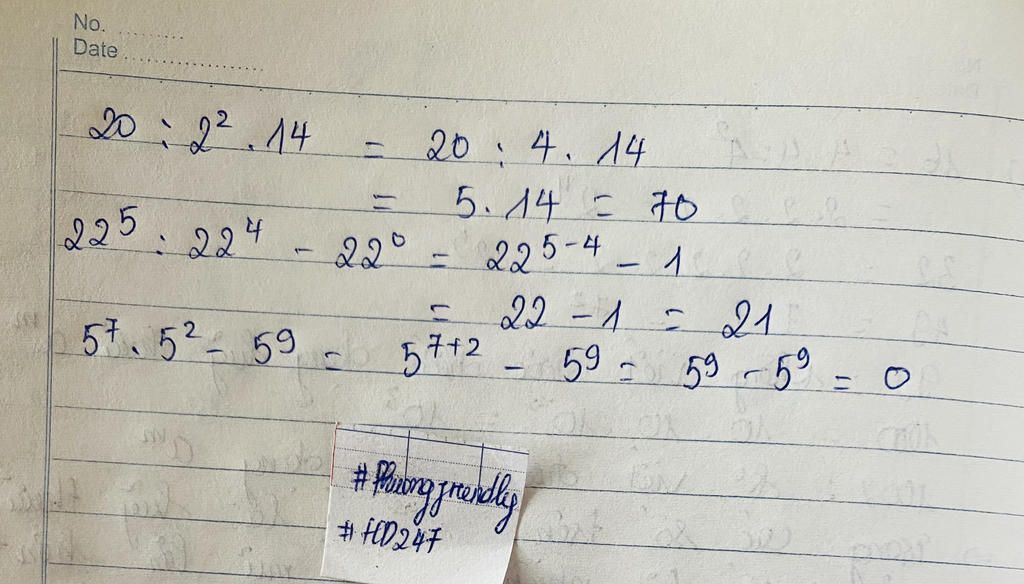 No. .........
Date ...................
20 : 2² . 14 = 20 : 4 . 14
= 5 . 14 = 70
22⁵ : 22⁴ - 22⁰ = 22⁵⁻⁴ - 1
= 22 - 1 = 21
5⁷ . 5² - 5⁹ = 5⁷⁺² - 5⁹ = 5⁹ - 5⁹ = 0
#Phuongfriendly
#HD247